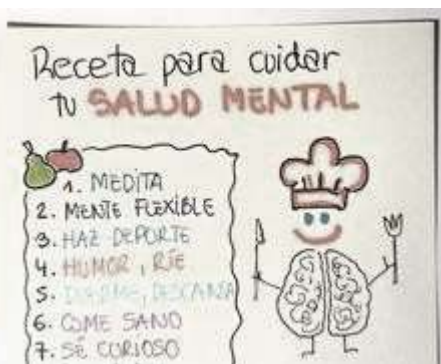 Receta para cuidar
tu SALUD MENTAL
1. MEDITA
2. MENTE FLEXIBLE
3. HAZ DEPORTE
4. HUMOR, RÍE
5. DUERME, DESCANSA
6. COME SANO
7. SÉ CURIOSO